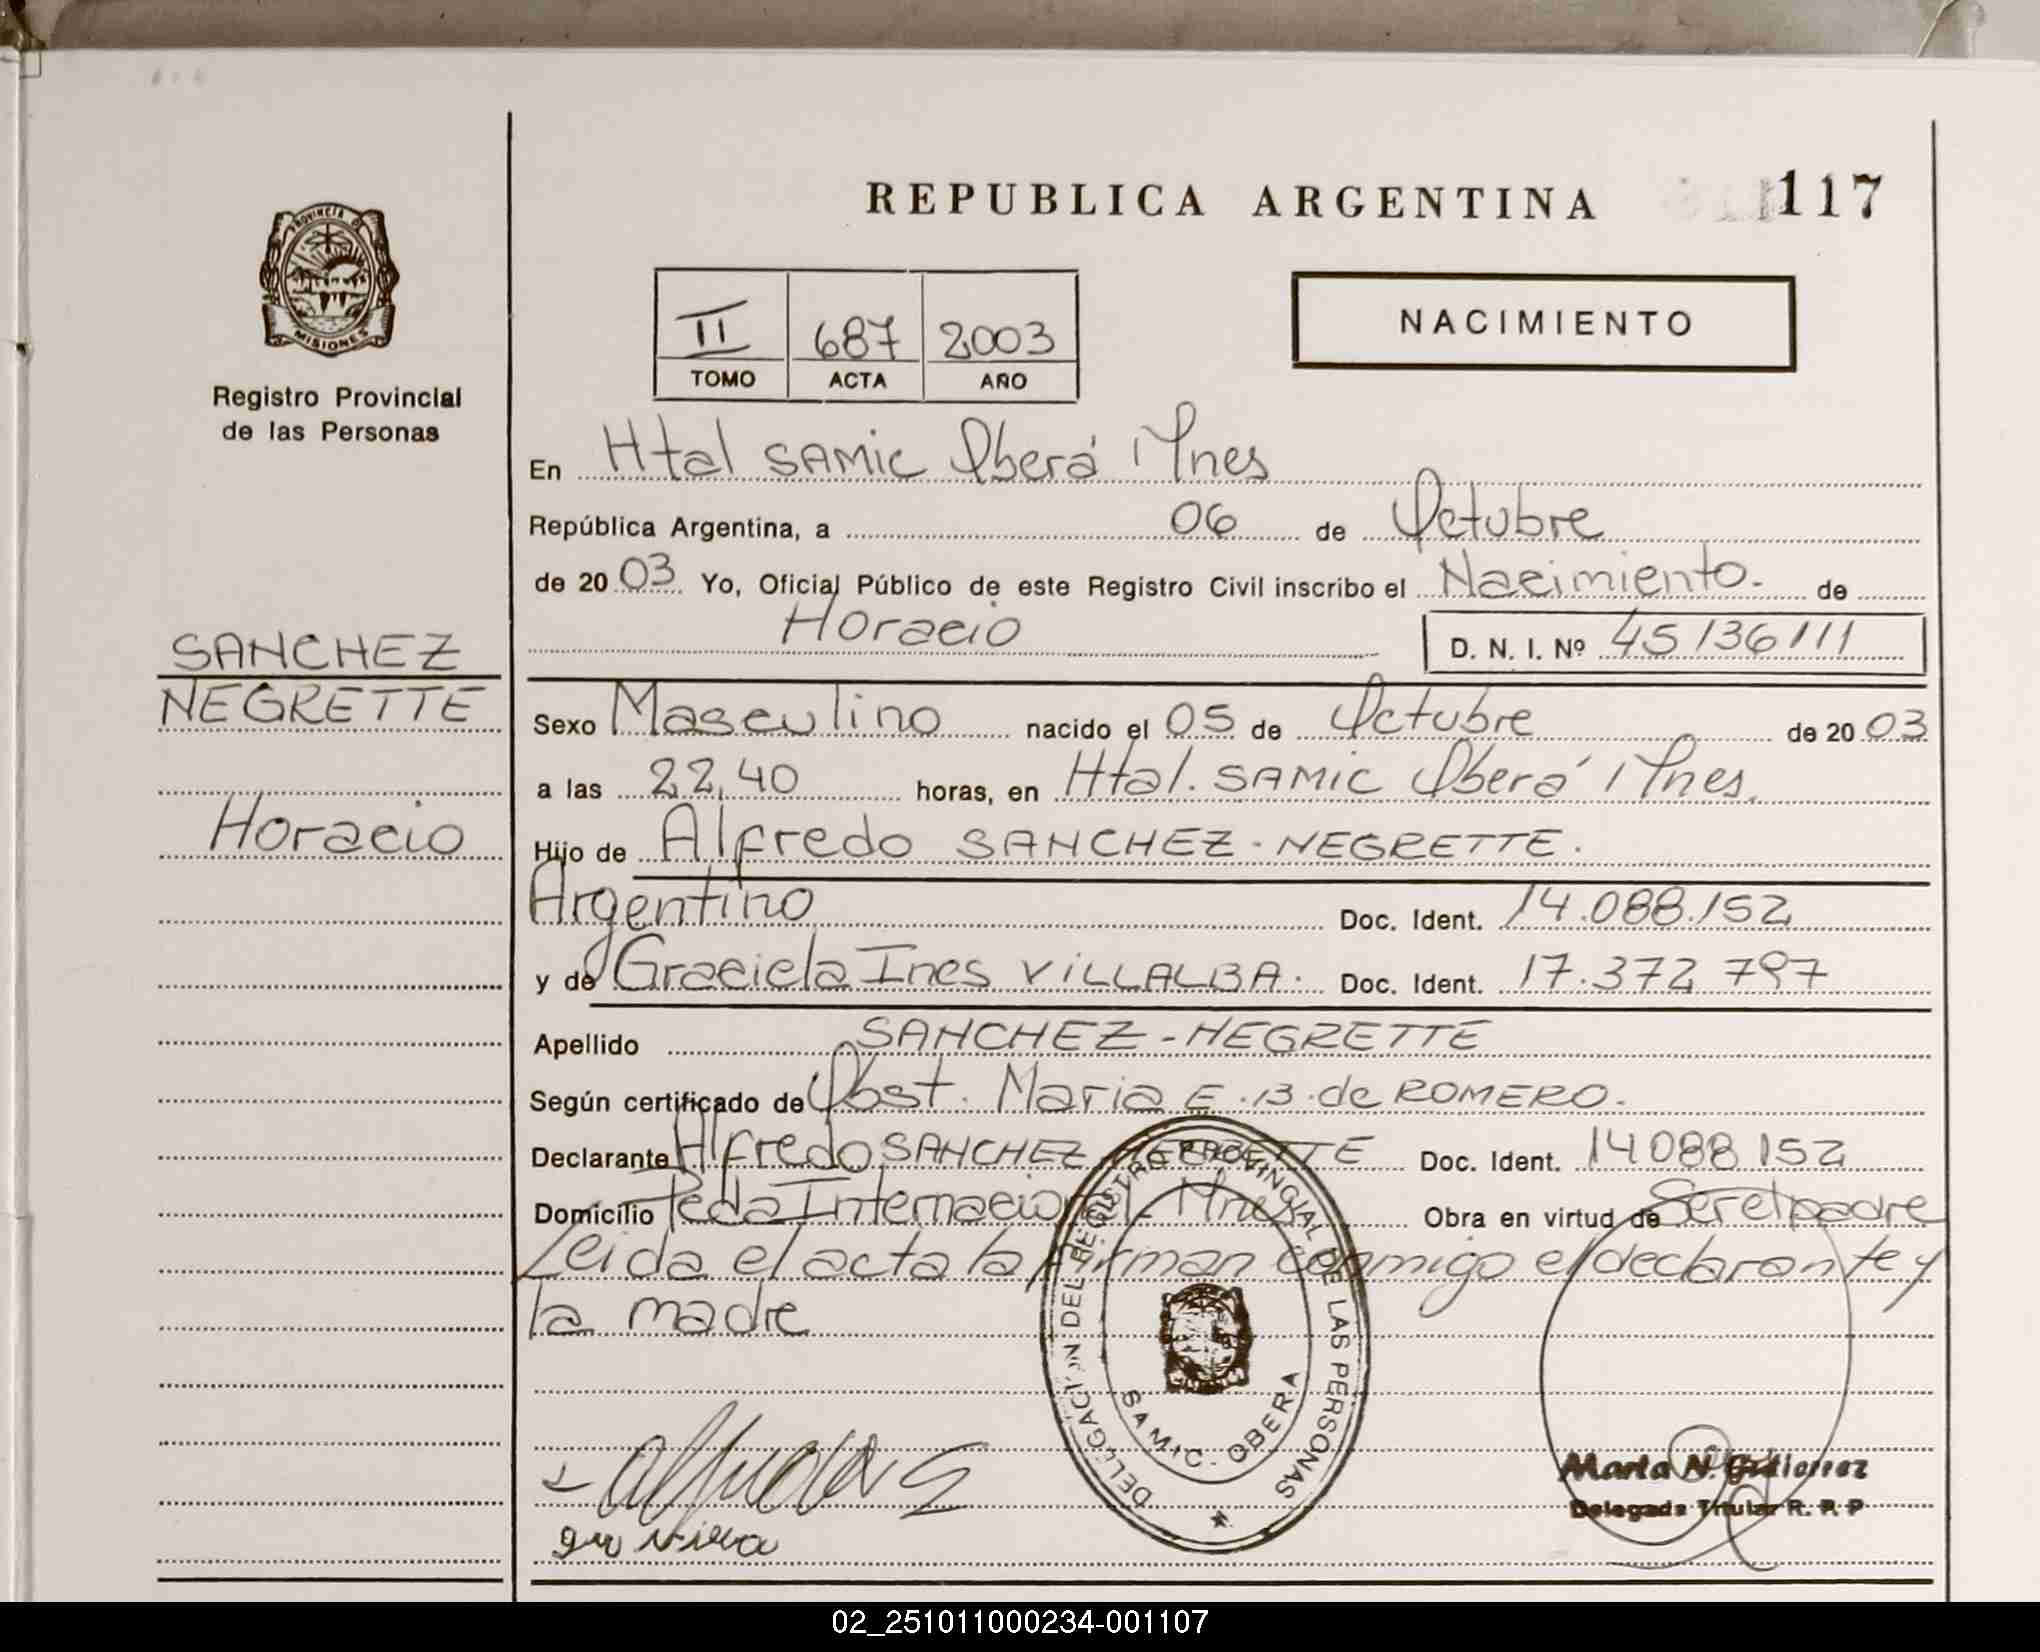 REPUBLICA ARGENTINA
117
PROVINCIA DE
MISIONES
Registro Provincial
de las Personas
II 687 2003
TOMO ACTA AÑO
NACIMIENTO
En Htal SAMIC Oberá Mnes
República Argentina, a 06 de Octubre
de 20 03 Yo, Oficial Público de este Registro Civil inscribo el Nacimiento. de
Horacio
D. N. I. Nº 45136111
SANCHEZ
NEGRETTE
Horacio
Sexo Masculino nacido el 05 de Octubre de 20 03
a las 22,40 horas, en Htal. SAMIC Oberá Mnes.
Hijo de Alfredo SANCHEZ-NEGRETTE.
Argentino Doc. Ident. 14.088.152
y de Graciela Ines VILLALBA. Doc. Ident. 17.372 797
Apellido SANCHEZ-NEGRETTE
Según certificado de Obst. Maria E.B. de ROMERO.
Declarante Alfredo SANCHEZ NEGRETTE Doc. Ident. 14088152
Domicilio Internacional Mnes Obra en virtud de Ser el padre
Leida el acta la firman conmigo el declarante y
la madre
DELEGACION DEL REGISTRO PROVINCIAL DE LAS PERSONAS
SAMIC - OBERA
Marta N. Gutierrez
Delegada Titular R. P. P
02_251011000234-001107